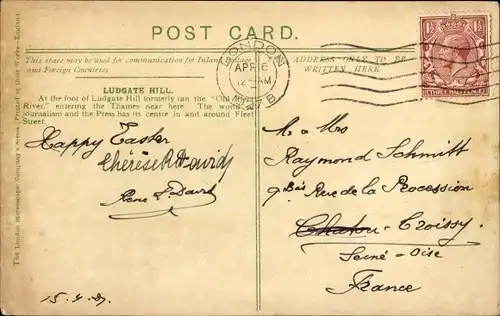 POST CARD.
This space may be used for communication for Inland Postage
and Foreign Countries
ADDRESS ONLY TO BE
WRITTEN HERE
LONDON
APR 6
12- AM
LUDGATE HILL.
At the foot of Ludgate Hill formerly ran the "Old
River," entering the Thames near here. The world
Journalism and the Press has its centre in and around Fleet
Street.
Happy Easter
Thérèse R David
René L David
15.4.27.
M & Mrs
Raymond Schmitt
9 bis Rue de la Procession
Chatou - Croissy
Seine-Oise
France
THREE HALFPENCE
The London Stereoscopic Company's Series